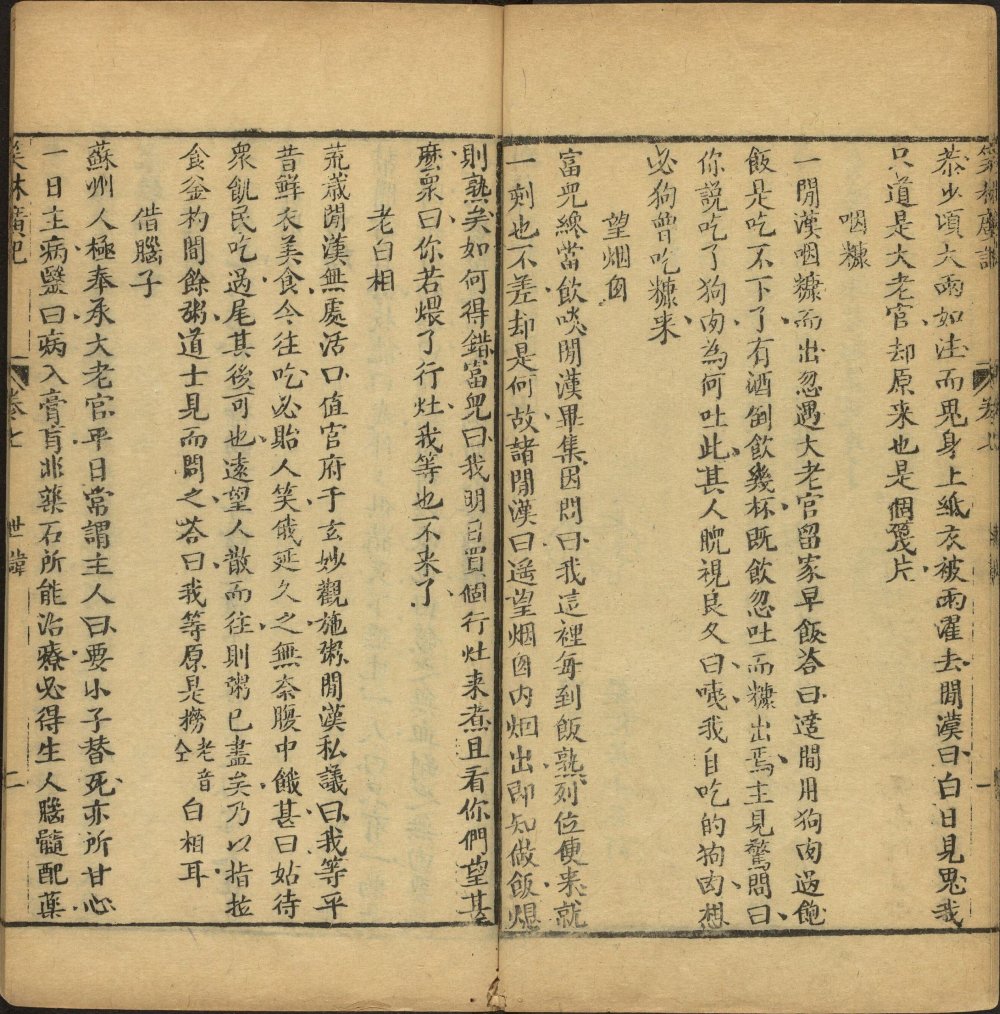 笑林廣記 卷七 一
恭少頃大雨如注而鬼身上紙衣被雨濯去閒漢曰白日見鬼我
只道是大老官却原来也是個篾片
咽糠
一閒漢咽糠而出忽遇大老官留家早飯答曰適間用狗肉過飽
飯是吃不下了有酒倒飲幾杯既飲忽吐而糠出焉主見驚問曰
你説吃了狗肉為何吐此其人睨視良久曰咦我自吃的狗肉想
必狗曾吃糠来
望烟囱
富児纔當飲啖閒漢畢集因問曰我這裡每到飯熟列位便来就
一刻也不差却是何故諸閒漢曰遥望烟囱内烟出即知做飯熄
則熟矣如何得錯富児曰我明日買個行灶来煮且看你們望甚
麽衆曰你若煨了行灶我等也不来了
老白相
荒歲閒漢無處活口值官府于玄妙觀施粥閒漢私議曰我等平
昔鮮衣美食今往吃必貽人笑俄延久之無奈腹中餓甚曰姑待
衆飢民吃過尾其後可也遠望人散而往則粥已盡矣乃以指拉
食釜杓間餘粥道士見而問之答曰我等原是撈仝老音白相耳
借腦子
蘇州人極奉承大老官平日常謂主人曰要小子替死亦所甘心
一日主病醫曰病入膏肓非藥石所能治療必得生人腦髓配藥
笑林廣記 卷七 世諱 二